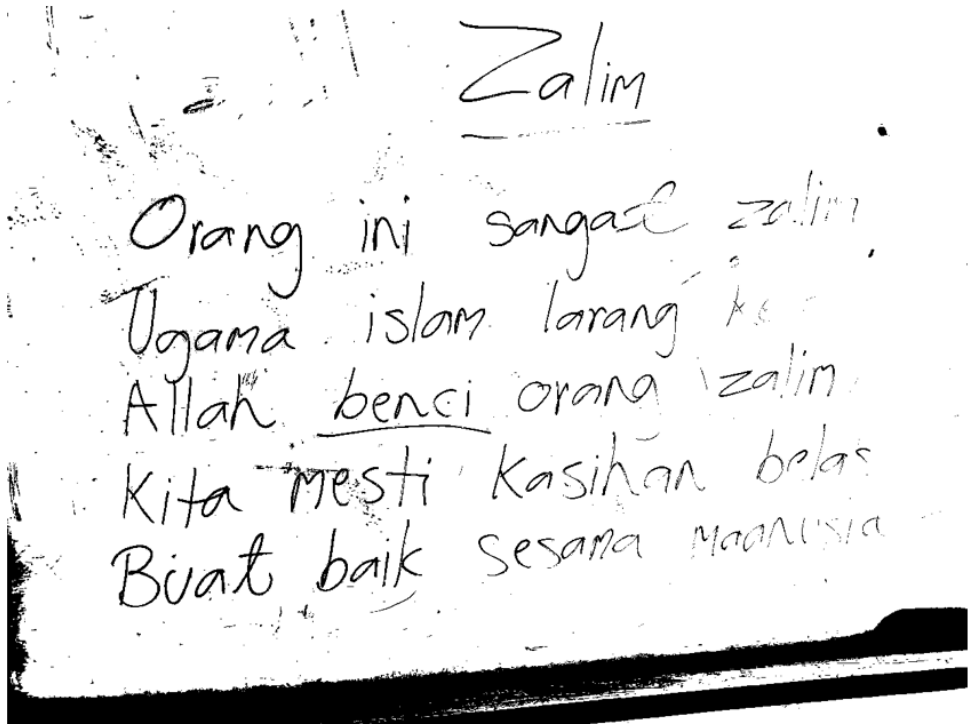 Zalim
Orang ini sangat zalim
Ugama islam larang
Allah benci orang zalim
Kita mesti kasihan belas
Buat baik sesama maanusia